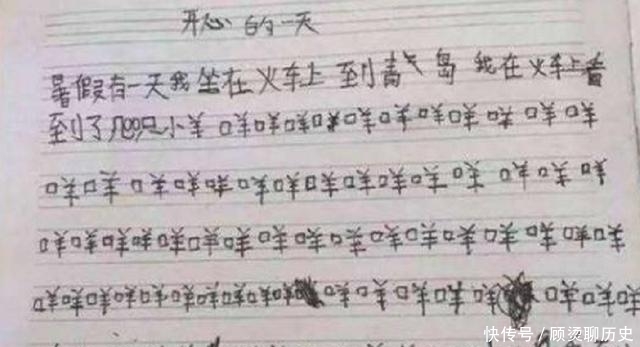 开心的一天
暑假有一天我坐在火车上到青气岛 我在火车上看
到了几只小羊 咩咩咩咩咩咩咩咩咩咩咩咩
咩咩咩咩咩咩咩咩咩咩咩咩咩咩咩
咩咩咩咩咩咩咩咩咩咩咩咩咩咩咩咩咩
咩咩咩咩咩咩咩咩咩咩咩咩咩咩咩咩咩咩
快传号／顾烫聊历史